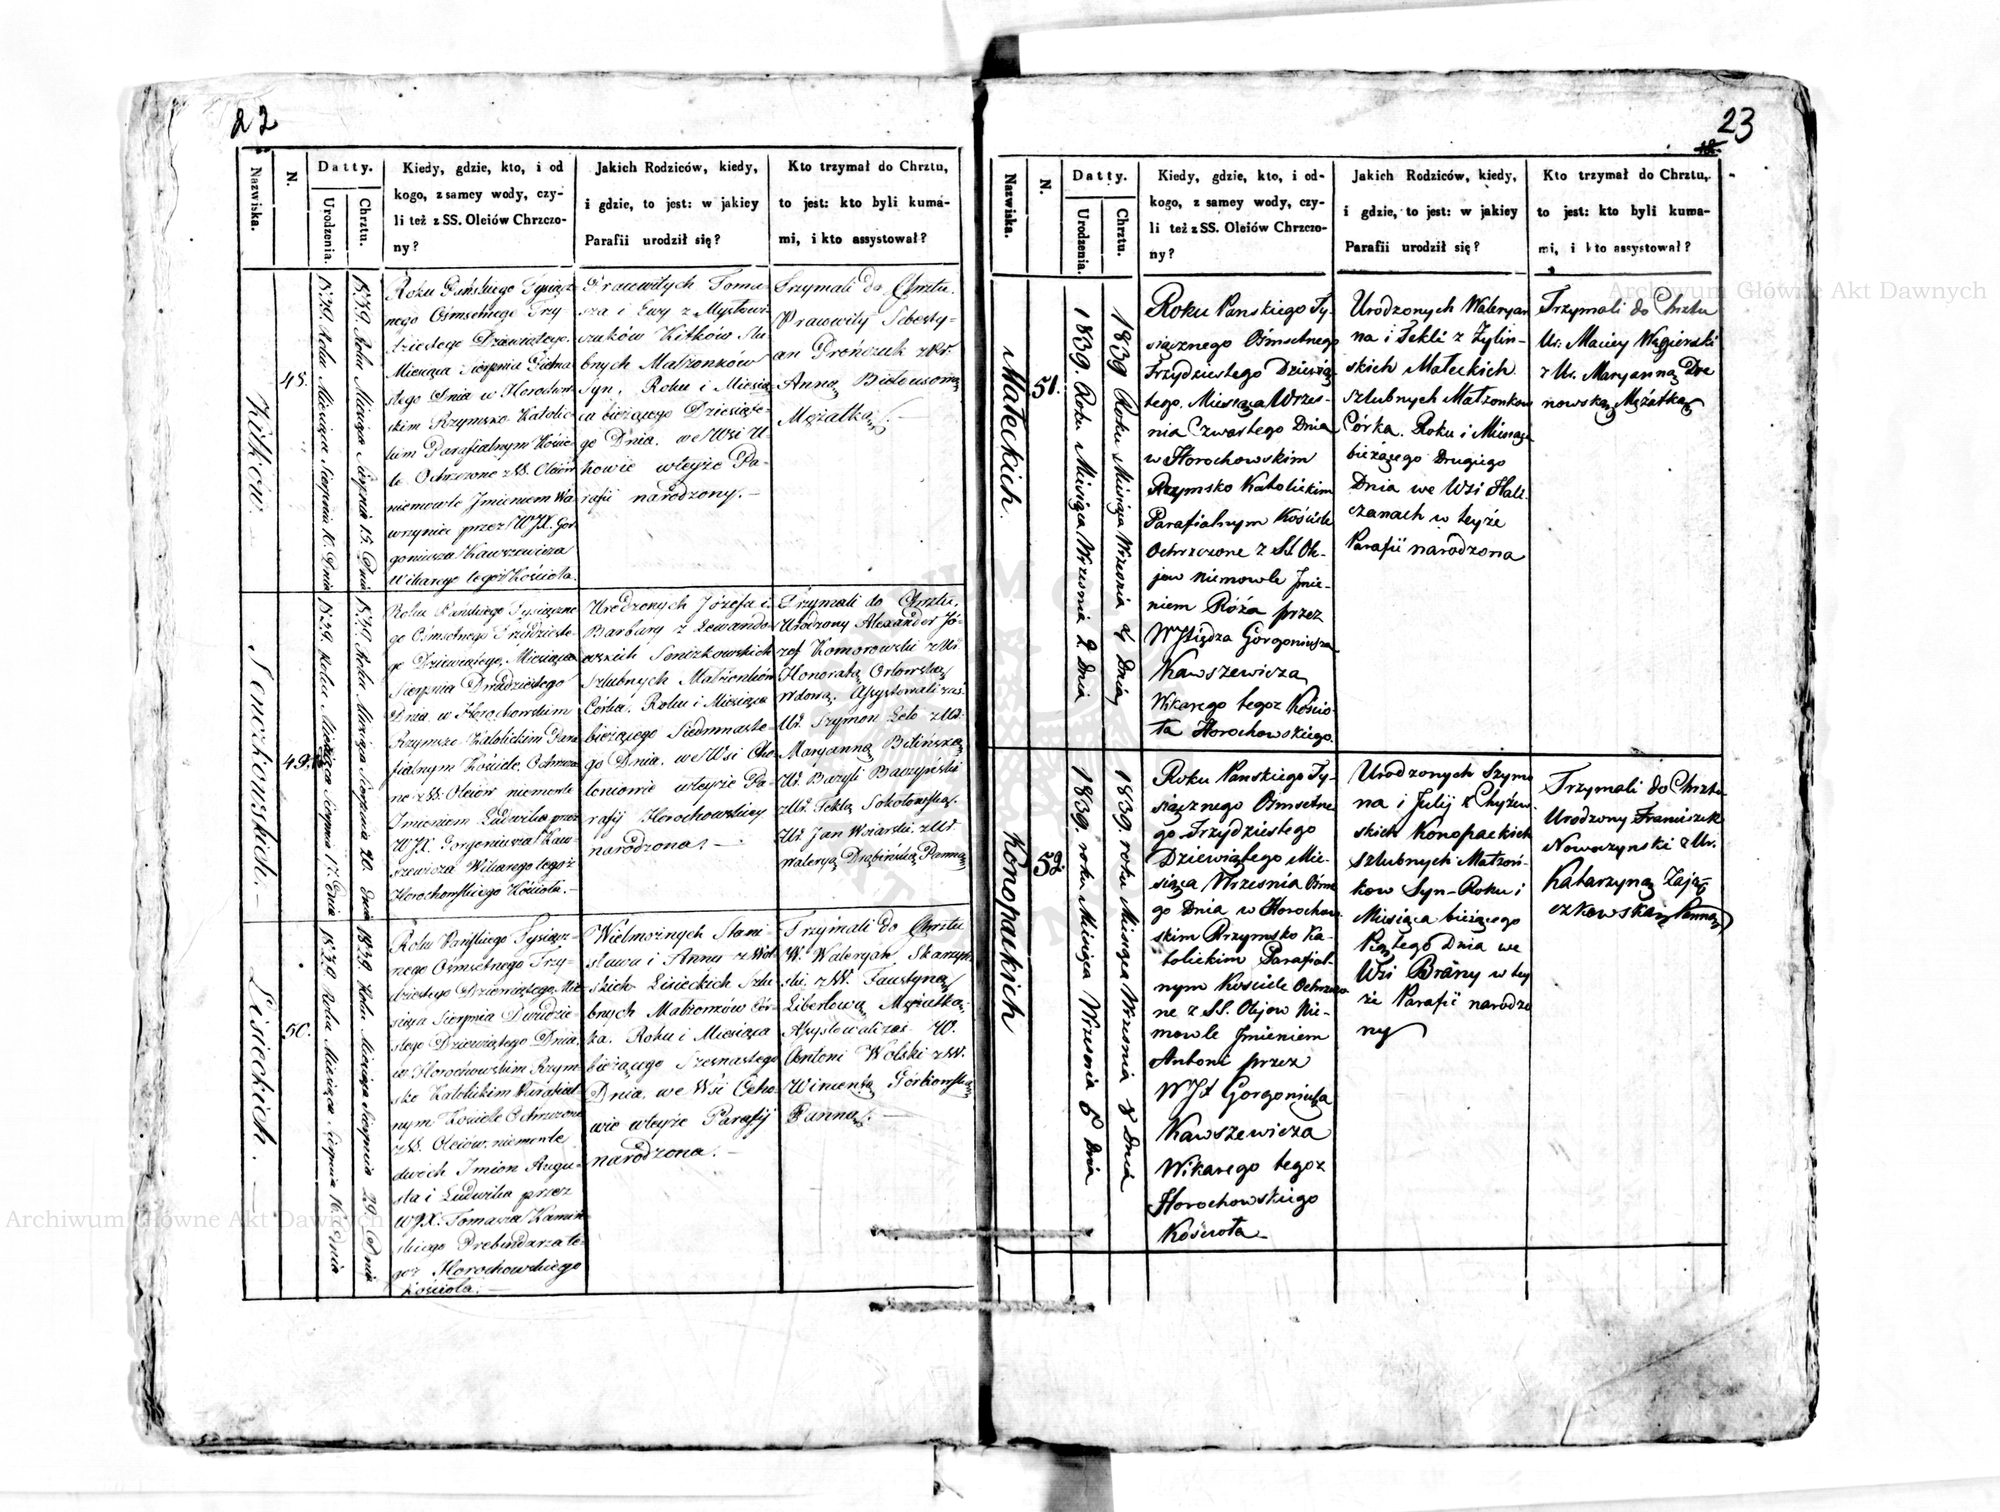 22
Nazwiska.
N.
Datty.
Urodzenia.
Chrztu.
Kiedy, gdzie, kto, i od
kogo, z samey wody, czy-
li też z SS. Oleiów Chrzczo-
ny?
Jakich Rodziców, kiedy,
i gdzie, to jest: w jakiey
Parafii urodził się?
Kto trzymał do Chrztu,
to jest: kto byli kuma-
mi, i kto assystował?
Kitków
1839. Roku Miesiąca Sierpnia 10. Dnia
1839. Roku Miesiąca Sierpnia 15. Dnia
Roku Pańskiego Tysiącz-
nego Ośmsetnego Trzy-
dziestego Dziewiątego
Miesiąca Sierpnia
stego Dnia w Horochow-
skim Rzymsko Katolic-
kim Parafialnym Koście-
le Ochrzczone z SS. Oleiów
niemowle Jmieniem Wa-
wrzyniec przez WJX. Gor-
goniusza Kawszewicza
Wikarego tegoż Kościoła.
Pracowitych Toma-
sza i Ewy z
Kitków Ślu-
bnych Małżonków
Syn. Roku i Miesią-
ca bieżącego Dziesiąte-
go Dnia. we Wsi
w teyże Pa-
rafii narodzony. —
Trzymali do Chrztu.
Pracowity Sebesty-
an
Anną
Mężatką. —
Senczkowskich. —
49.
1839. Roku Miesiąca Sierpnia 17. Dnia
1839. Roku Miesiąca Sierpnia 20. Dnia
Roku Pańskiego Tysiączne-
go Ośmsetnego Trzydzieste-
go Dziewiątego, Miesiąca
Sierpnia Dwudziestego
Dnia w Horochowskim
Rzymsko Katolickim Para-
fialnym Kościele, Ochrzczo-
ne z SS. Oleiów niemowle
Jmieniem Ludwika przez
WJX. Gorgoniusza Kaw-
szewicza Wikarego tegoż
Horochowskiego Kościoła. —
Urodzonych Józefa i
Barbary z Lewando-
wskich Senczkowskich
Szlubnych Małżonków
Córka. Roku i Miesiąca
bieżącego Siedmnaste-
go Dnia. we Wsi
w teyże Pa-
rafij Horochowskiey
narodzona. —
Trzymali do Chrztu.
Urodzony Alexander Jó-
zef Komorowski z Ur.
Honoratą Orłowską
Wdową. Assystowali zaś
Ur. Szymon z Ur.
Maryanną Bilińską
Ur. Bazyli Baczyński
z Ur. Teklą Sokołowską.
Ur. Jan z Ur.
Waleryą Drabińską Panną
Lisieckich. —
50.
1839 Roku Miesiąca Sierpnia 16. Dnia
1839. Roku Miesiąca Sierpnia 29. Dnia
Roku Pańskiego Tysiącz-
nego Ośmsetnego Trzy-
dziestego Dziewiątego, Mie-
siąca Sierpnia Dwudzie-
stego Dziewiątego Dnia.
w Horochowskim Rzym-
sko Katolickim Parafial-
nym Kościele Ochrzczone
z SS. Oleiów niemowle
dwóch Imion Augu-
sta i Ludwika przez
WJX. Tomasza Kamiń-
skiego Prebendarza te-
goż Horochowskiego
Kościoła. —
Wielmożnych Stani-
sława i Anny z Wol-
skich Lisieckich Szlu-
bnych Małżonków Cór-
ka. Roku i Miesiąca
bieżącego Szesnastego
Dnia. we Wsi
w teyże Parafij
narodzona. —
Trzymali do Chrztu
W. Waleryan
z W. Faustyną
Libertową Mężatką.
Assystowali zaś W.
Antoni Wolski z W.
Wincentą Górkowską
Panną. —
23
Nazwiska.
N.
Datty.
Urodzenia.
Chrztu.
Kiedy, gdzie, kto, i od-
kogo, z samey wody, czy-
li też z SS. Oleiów Chrzczo-
ny?
Jakich Rodziców, kiedy,
i gdzie, to jest: w jakiey
Parafii urodził się?
Kto trzymał do Chrztu,
to jest: kto byli kuma-
mi, i kto assystował?
Małeckich
51.
1839. Roku Miesiąca Września 2 Dnia
1839 Roku Miesiąca Września 4 Dnia
Roku Panskiego Ty-
siącznego Ośmsetnego
Trzydziestego Dziewią-
tego. Miesiąca Wrześ-
nia Czwartego Dnia
w Horochowskim
Rzymsko Katolickim
Parafialnym Kościele
Ochrzczone z SS. Ole-
jow niemowle Jmie-
niem Róża przez
W Xiędza Gorgoniusza
Kawszewicza
Wikarego tegoz Kościo-
ła Horochowskiego.
Urodzonych Walerya-
na i Tekli z Zylin-
skich Małeckich
szlubnych Małżonkow
Córka. Roku i Miesiąca
bieżącego Drugiego
Dnia we Wsi Hali-
czanach w teyże
Parafii narodzona
Trzymali do Chrztu
Ur. Maciey Węgierski
z Ur. Maryanną Dre
nowską Mężatką
Konopackich
52.
1839. roku Miesiąca Wrzesnia 5 Dnia
1839. roku Miesiąca Wrzesnia 8 Dnia
Roku Panskiego Ty-
siącznego Ośmsetne-
go Trzydziestego
Dziewiątego Mie-
siąca Wrzesnia Ósme-
go Dnia w Horochow-
skim Rzymsko Ka-
tolickim Parafial-
nym Kościele Ochrzczo-
ne z SS. Olejow Nie-
mowle Jmieniem
Antoni przez
WJX Gorgoniusza
Kawszewicza
Wikarego tegoz
Horochowskiego
Kościoła
Urodzonych Szymo
na i Julij z Chyżew-
skich Konopackich
szlubnych Małżon-
kow Syn Roku i
Miesiąca bieżącego
Piątego Dnia we
Wsi Brany w tey
że Parafii narodzo
ny
Trzymali do Chrztu
Urodzony Franciszek
Nowoszynski z Ur.
Katarzyną Zają-
czkowską Panną
Archiwum Główne Akt Dawnych
Archiwum Główne Akt Dawnych